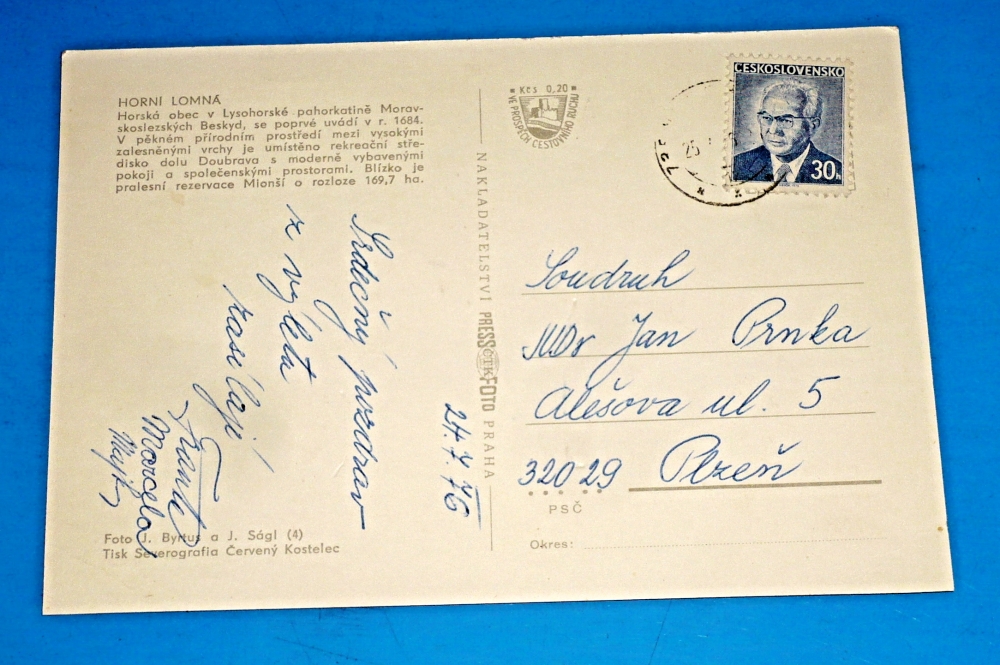 HORNÍ LOMNÁ
Horská obec v Lysohorské pahorkatině Morav-
skoslezských Beskyd, se poprvé uvádí v r. 1684.
V pěkném přírodním prostředí mezi vysokými
zalesněnými vrchy je umístěno rekreační stře-
disko dolu Doubrava s moderně vybavenými
pokoji a společenskými prostorami. Blízko je
pralesní rezervace Mionší o rozloze 169,7 ha.
Srdečný pozdrav
z výleta
zasílají
Franta
Marcela
24.7.76
Foto J. Byrtus a J. Ságl (4)
Tisk Severografia Červený Kostelec
NAKLADATELSTVÍ PRESSFOTO PRAHA
ČTK
Kčs 0,20
VE PROSPĚCH CESTOVNÍHO RUCHU
ČESKOSLOVENSKO
30h
25
Soudruh
MDr Jan Prnka
Alešova ul. 5
320 29 Plzeň
PSČ
Okres: